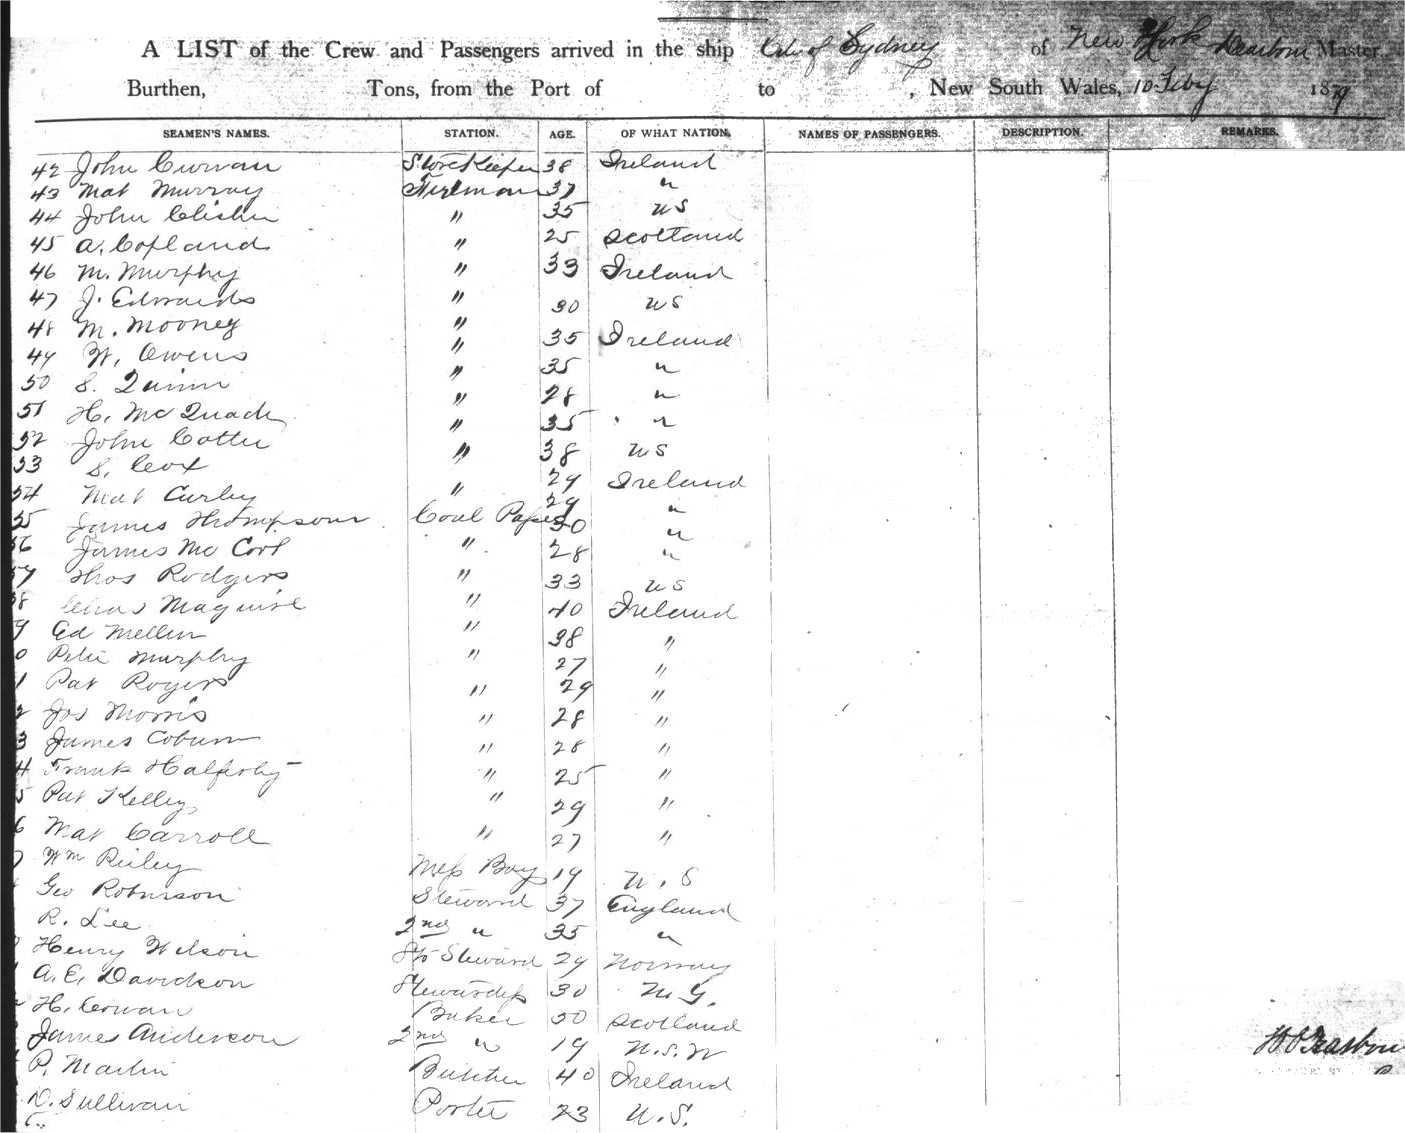 A LIST of the Crew and Passengers arrived in the ship City of Sydney of New York Dearborn Master
Burthen, Tons, from the Port of to , New South Wales, 10 Feby 1879
SEAMEN'S NAMES. STATION. AGE. OF WHAT NATION. NAMES OF PASSENGERS. DESCRIPTION. REMARKS.
42 John Curran StoreKeeper 38 Ireland
43 Mat Murray Fireman 37 "
44 John Clisher " 35 US
45 A. Copland " 25 Scotland
46 M. Murphy " 33 Ireland
47 J. Edwards " 30 US
48 M. Mooney " 35 Ireland
49 W. Owens " 35 "
50 S. Quinn " 28 "
51 H. McQuade " 35 "
52 John Cotter " 38 US
53 S. Cox " 29 Ireland
54 Mat Curley " 29 "
55 James Thompson Coal Passer 30 "
56 James Mc Cort " 28 "
57 Thos Rodgers " 33 US
58 Chas Maguire " 40 Ireland
9 Ed Mellen " 38 "
0 Peter Murphy " 27 "
1 Pat Rogers " 29 "
2 Jos Morris " 28 "
3 James Coburn " 28 "
4 Frank Halferty " 25 "
5 Pat Kelley " 29 "
6 Mat Carroll " 27 "
7 Wm Reiley Mess Boy 19 U.S
Geo Robinson Steward 37 England
R. Lee 2nd " 35 "
Henry Wilson Steward 29 Norway
A. E. Davidson Stewardess 30
H. Cowan Baker 30 Scotland
James Anderson 2nd " 19 N.S.W
P. Martin Butcher 40 Ireland
D. Sullivan Porter 23 U.S.